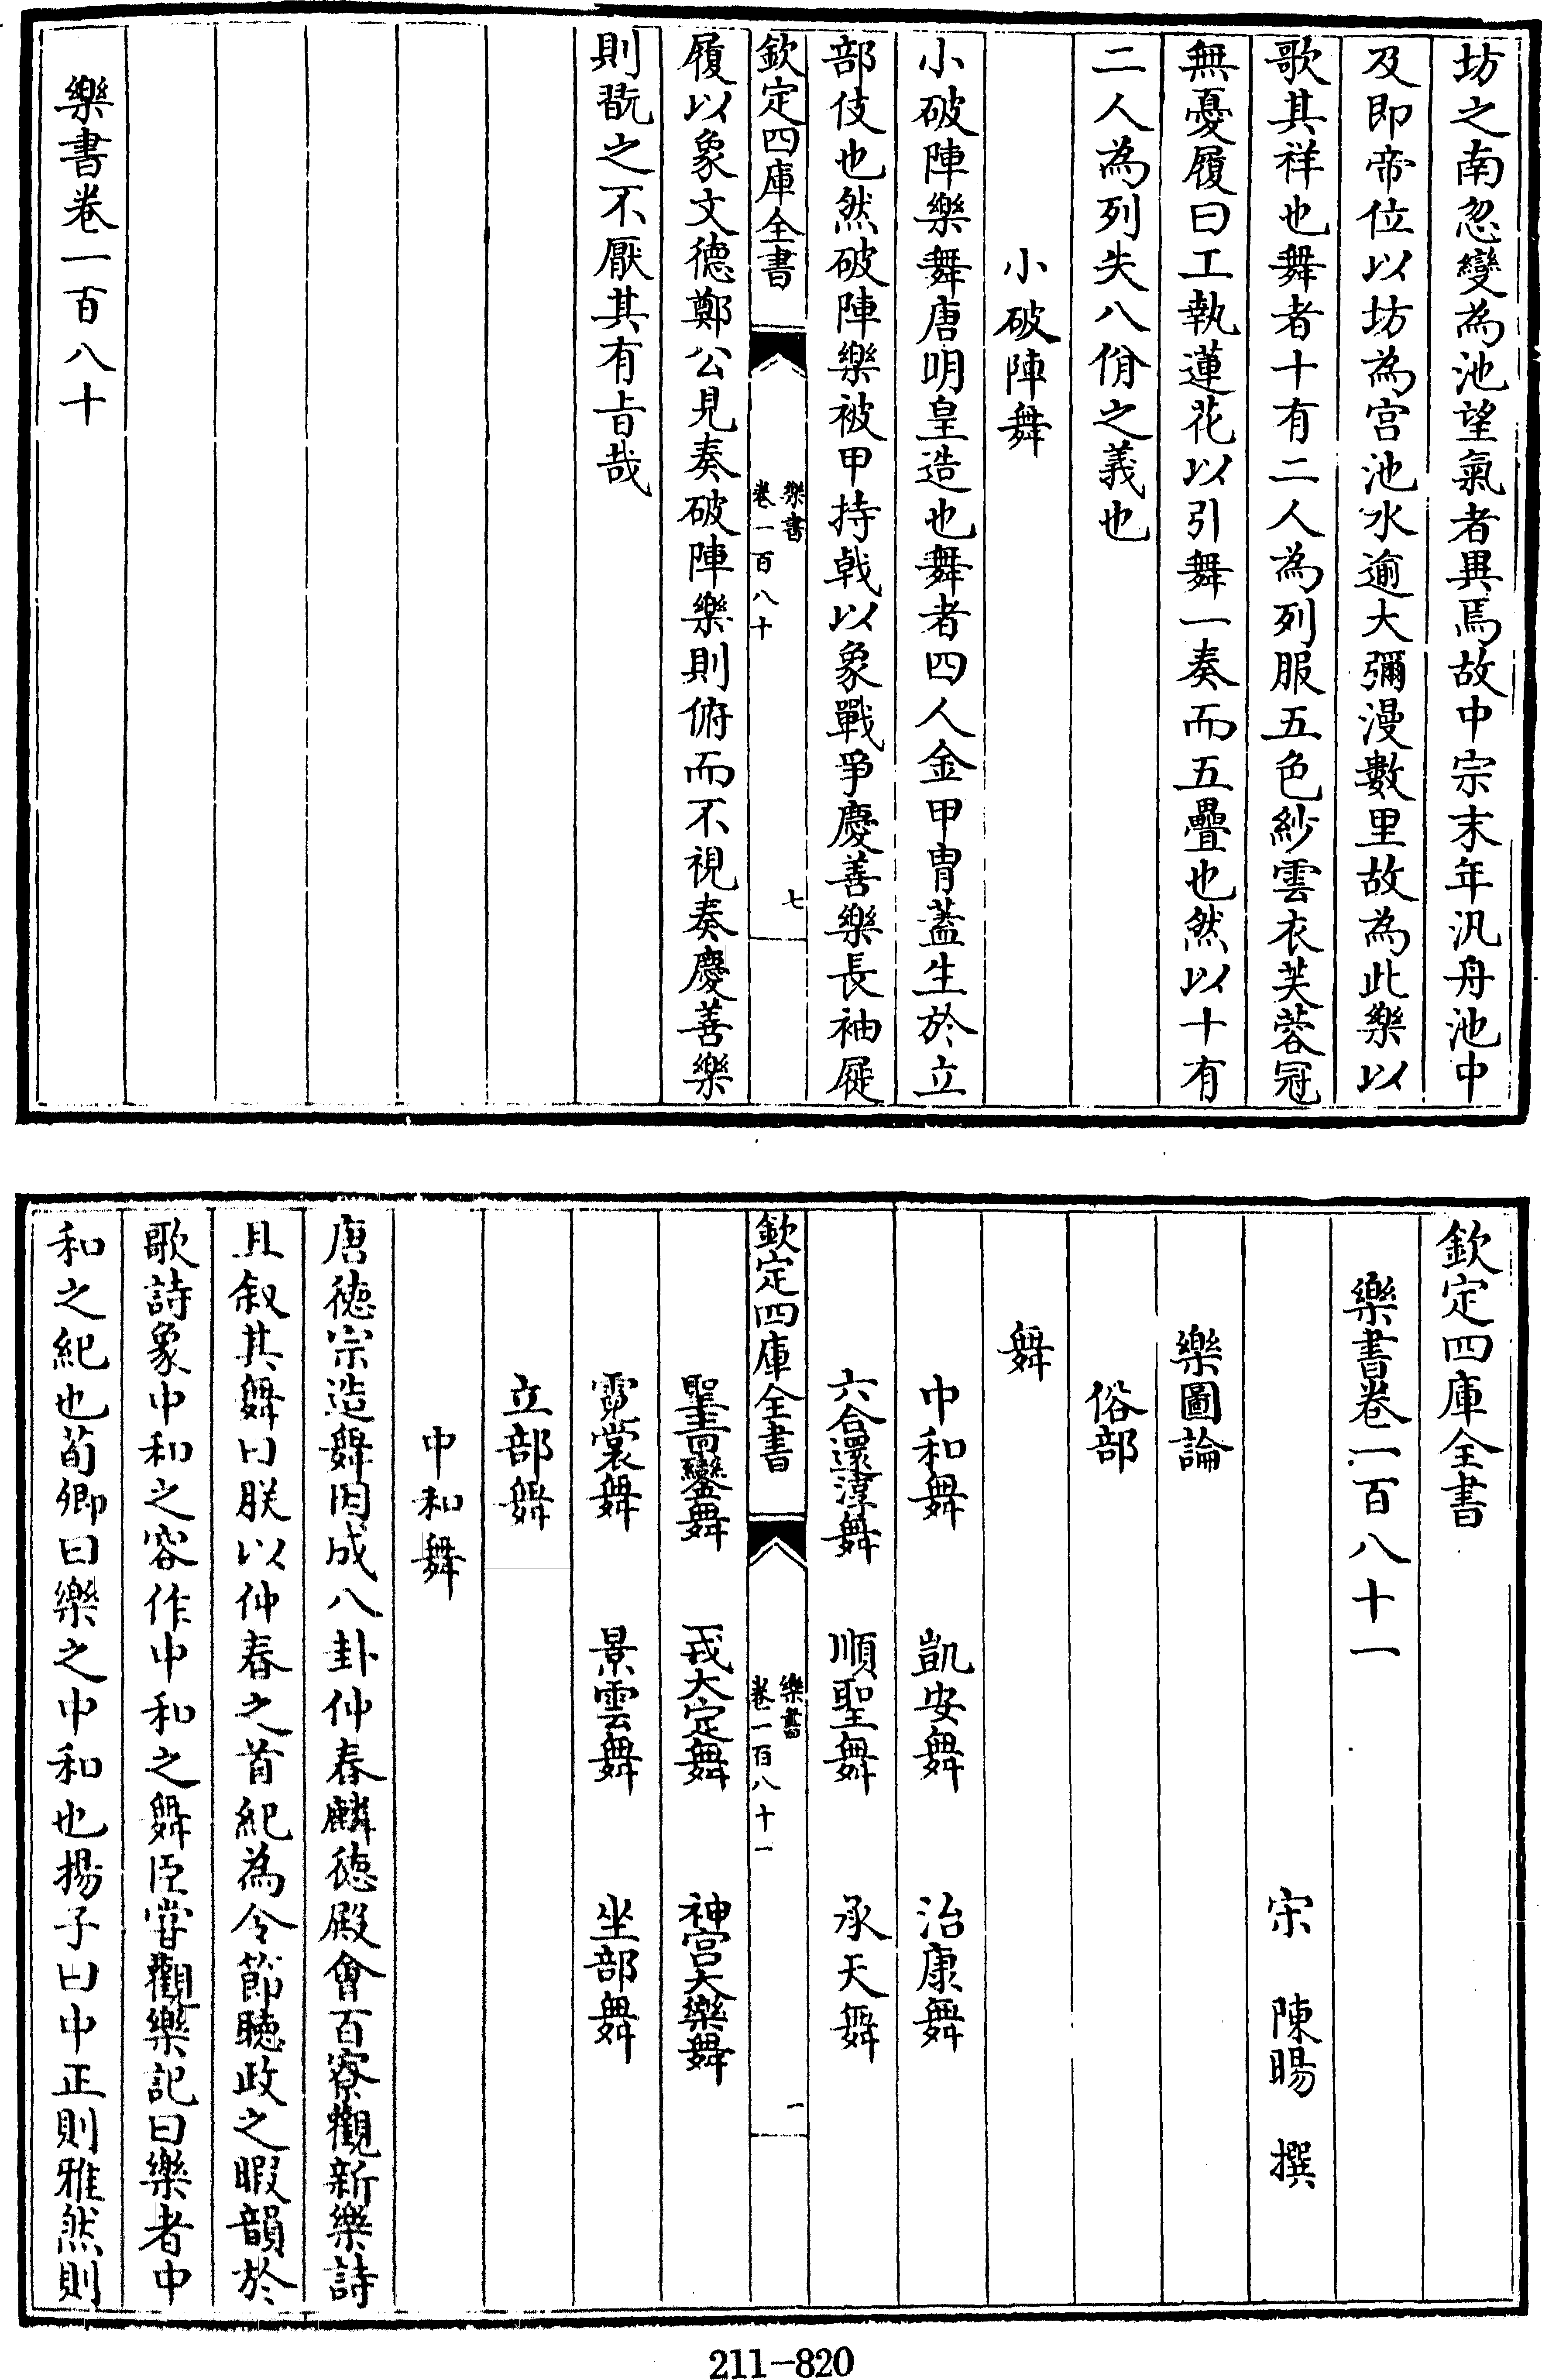 坊之南忽變為池望氣者異焉故中宗末年汎舟池中
及即帝位以坊為宫池水逾大彌漫數里故為此樂以
歌其祥也舞者十有二人為列服五色紗雲衣芙蓉冠
無憂履曰工執蓮花以引舞一奏而五疊也然以十有
二人為列失八佾之義也
小破陣舞
小破陣樂舞唐明皇造也舞者四人金甲胄蓋生於立
部伎也然破陣樂被甲持戟以象戰爭慶善樂長袖屣
欽定四庫全書
樂書
卷一百八十
七
履以象文德鄭公見奏破陣樂則俯而不視奏慶善樂
則翫之不厭其有旨哉
樂書卷一百八十
欽定四庫全書
樂書卷一百八十一
宋 陳暘 撰
樂圖論
俗部
舞
中和舞 凱安舞 治康舞
六合還淳舞 順聖舞 承天舞
欽定四庫全書
樂書
卷一百八十一
一
聖壽鸞舞 一戎大定舞 神宫大樂舞
霓裳舞 景雲舞 坐部舞
立部舞
中和舞
唐德宗造舞因成八卦仲春麟德殿會百寮觀新樂詩
且叙其舞曰朕以仲春之首紀為令節聽政之暇韻於
歌詩象中和之容作中和之舞臣嘗觀樂記曰樂者中
和之紀也荀卿曰樂之中和也揚子曰中正則雅然則
211-820